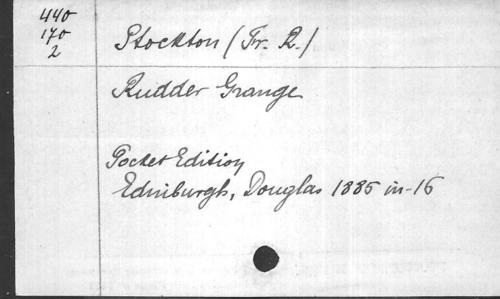 440
170
2
Stockton (Fr. R.)
Rudder Grange
Pocket Edition
Edinburgh, Douglas 1885 in-16